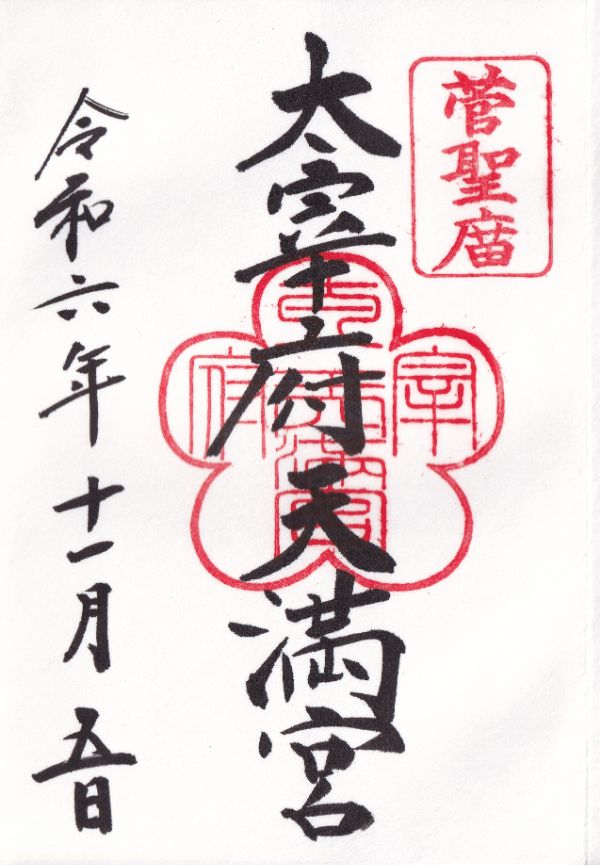 菅聖庿
太宰府天満宮
令和六年十一月五日